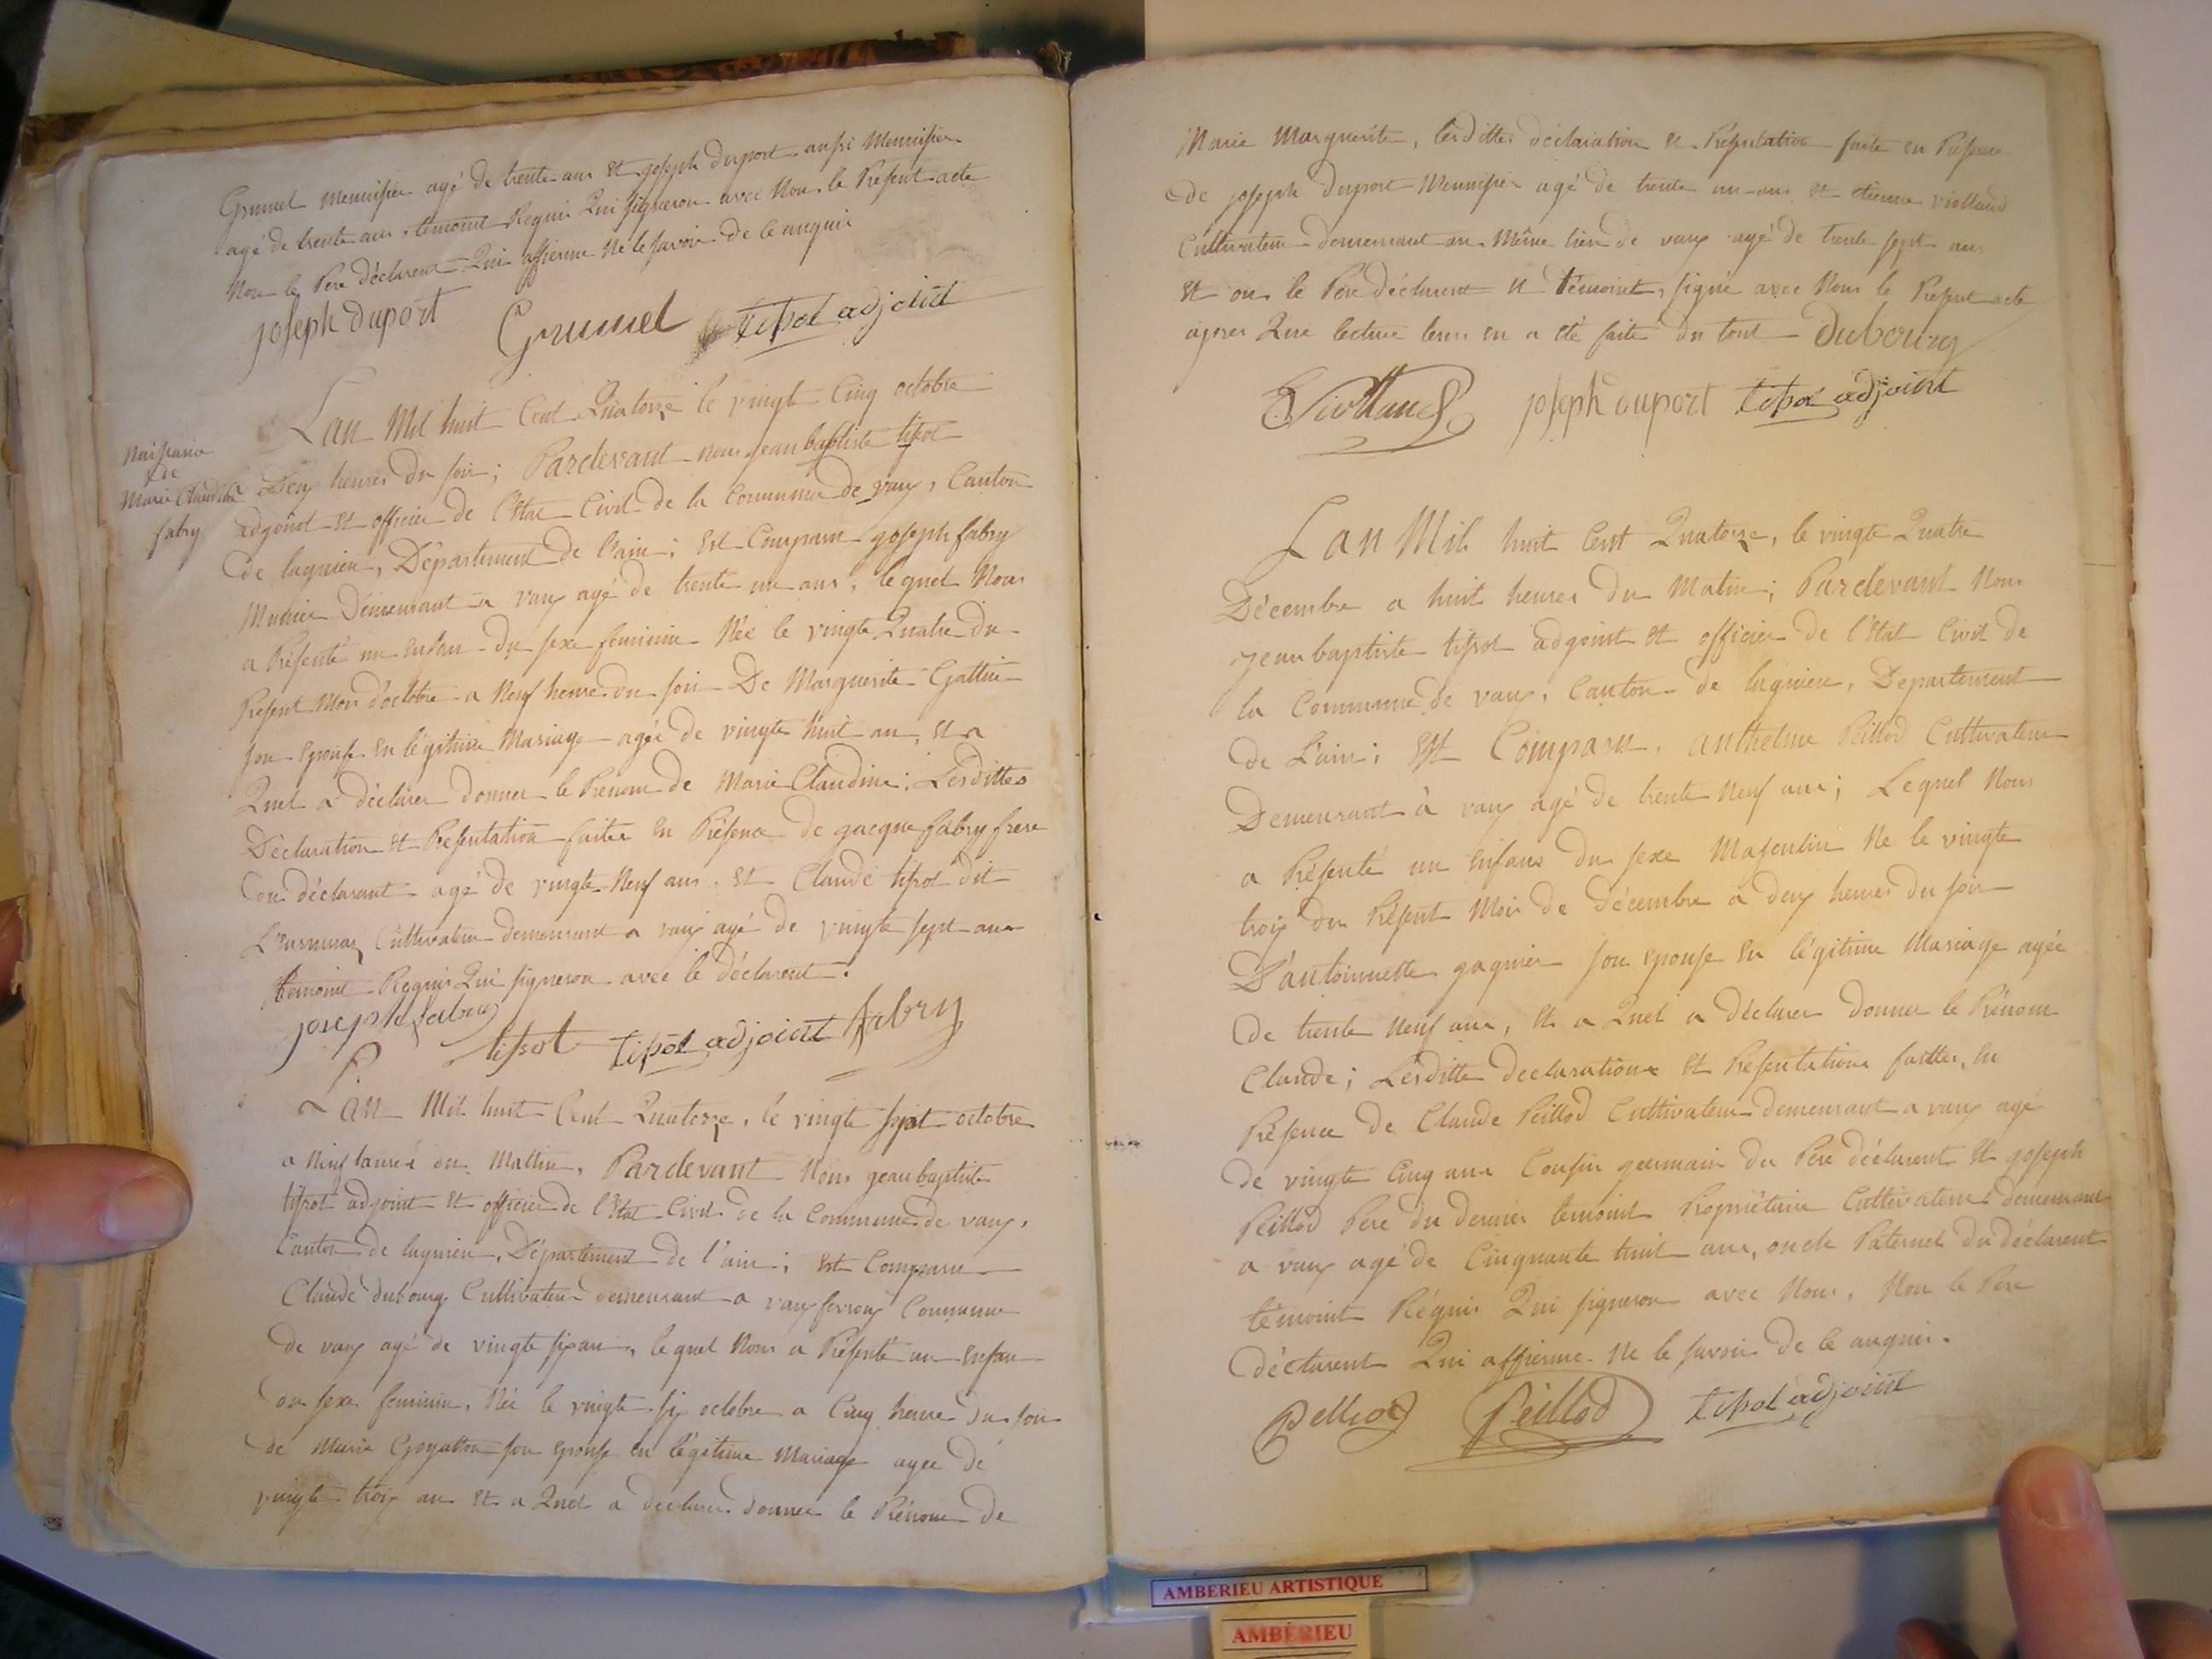 Grumel Menuisier agé de trente ans Et joseph duport aussi Menuisier
agé de trente ans, temoint Requis Qui signeron avec Nous le Présent acte
Non le Pere déclarent Qui affierme Né le savoir de Ce anquis
joseph duport Grumel tisot adjoint
Naissance
de
Marie Claudine
fabry
L'an Mil huit Cent Quatorze le vingt Cinq octobre
a Deux heures du soir; Pardevant nous jean baptiste tisot
adgoint Et officier de l'Etat Civil de la Commune de vaux, Canton
de lagnieu, Département de l'ain; Est Comparu goseph fabry
Demeurant a vaux agé de trente un ans, lequel Nous
a Présenté un Enfan du sexe feminin Née le vingte Quatre du
Présent Mois d'octobre a Neuf heure du soir De Marguerite Gattin
son Epouse En légitime Mariage agée de vingte huit an, Et a
Quel a déclarer donner le Prénom de Marie Claudine; Lesdittes
Déclaration Et Présentation faites En Présence de gacque fabry frere
du déclarant agé de vingte Neuf ans. Et Claude tisot dit
Cultivateur demeurant a vaux agé de vingte sept ans
temoint Requis Qui signeron avec le déclarent.
joseph fabry tisot tisot adjoint fabry
L'an Mil huit Cent Quatorze, le vingte sept octobre
a Neuf heures du Mattin, Pardevant Nous geanbaptiste
tisot adgoint Et officier de l'Etat Civil de la Commune de vaux,
Canton de lagnieu, Département de l'ain; Est Comparu
Claude dubourg Cultivateur demeurant a vaux fevroux Commune
de vaux agé de vingte six ans, lequel Nous a Présenté un Enfan
du sexe feminin, Née le vingte six octobre a Cinq heure du soir
de Marie Goyatton son Epouse En légitime Mariage agée de
vingte trois ans Et a Quel a declarer donner le Prénom de
Marie Marguerite, lesdittes déclaration Et Présentation faite En Présence
de joseph duport Menuisier agé de trente un ans Et Etienne viottand
Cultivateur demeurant au Même lieu de vaux agé de trente sept ans
Et on le Pere déclarent Et témoint, signé avec Nous le Présent acte
apres Que lecture leurs En a Eté faite du tout Dubourg
E Viottand joseph duport tisot adjoint
L'an Mil huit Cent Quatorze, le vingte Quatre
Décembre a huit heures du Matin; Pardevant Nous
jean baptiste tisot adgoint Et officier de l'Etat Civil de
la Commune de vaux, Canton de lagnieu, Departement
de L'ain; Est Comparu, anthelme Peillod Cultivateur
Demeurant à vaux agé de trente Neuf ans; Lequel Nous
a Présenté un Enfans du sexe Masculin Né le vingte
trois du Présent Mois de décembre a deux heures du soir
D'antoinette gagnier son Epouse En légitime Mariage agée
de trente Neuf ans, Et a Quel a déclarer donner le Prénom
Claude; Lesditte declarations Et Présentations faittes, En
Présence de Claude Peillod Cultivateur demeurant a vaux agé
de vingte Cinq ans Cousin germain du Pere déclarent Et goseph
Peillod Pere du dernier temoint Propriétaire Cultivateur demeurant
a vaux agé de Cinquante huit ans, oncle Paternel du déclarent
témoint Réquis Qui signeron avec Nous, Non le Pere
déclarent Qui affierme Ne le savoir de Ce anquis.
Pelliod Peillod tisot adjoint
AMBERIEU ARTISTIQUE
AMBÉRIEU